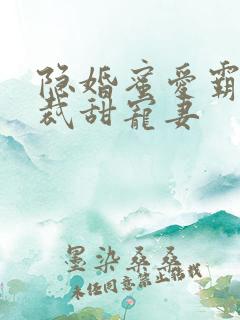 隐婚蜜爱霸
裁甜宠妻
墨染桑桑
未经同意禁止搭载